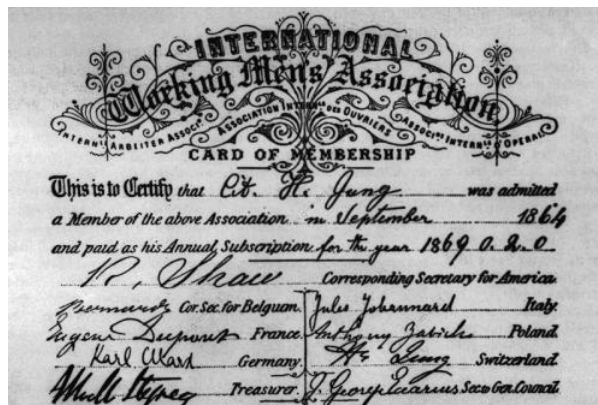 INTERNATIONAL
Working Men's Association
ARBEITER ASSOC ASSOCIATION INTERN DES OUVRIERS INTERN D'OPERAI
CARD OF MEMBERSHIP
This is to Certify that Cit. H. Jung was admitted
a Member of the above Association in September 1864
and paid as his Annual Subscription for the year 1869 0.2.0
R. Shaw Corresponding Secretary for America.
Bernard Cor. Sec. for Belgium. Jules Johannard Italy.
Eugene Dupont France. Anthony Zabicki Poland.
Karl Marx Germany. H. Jung Switzerland.
Treasurer. J. George Eccarius Sec to Gen. Council.